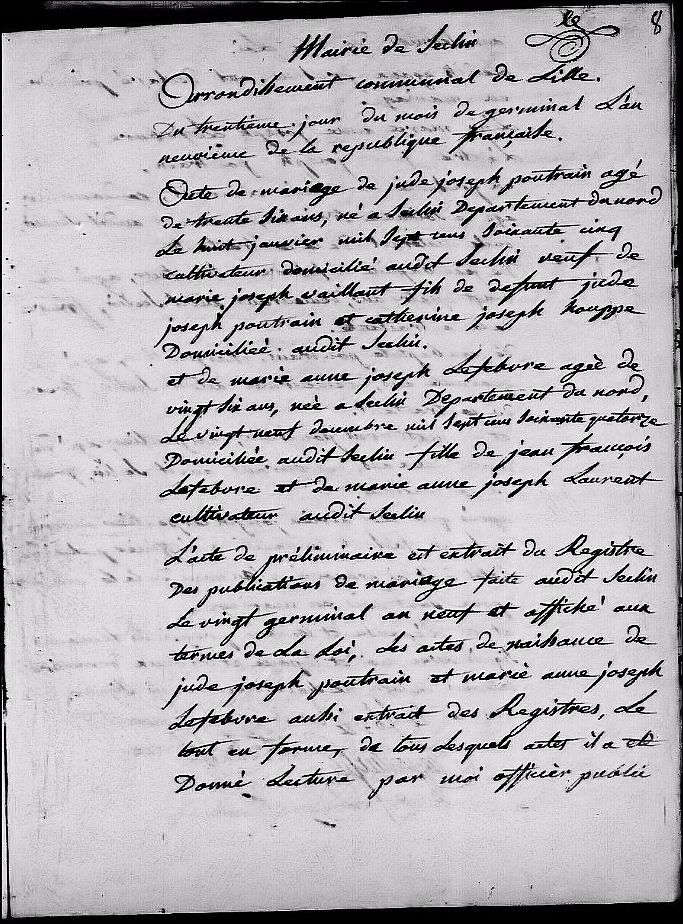 8
Mairie de Seclin
Arrondissement communal de Lille.
Du trentième jour du mois de germinal L'an
neuvième de la republique française.
Acte de mariage de jude joseph poutrain agé
de trente six ans, né a Seclin Departement du nord
Le huit janvier mil sept cens soixante cinq
cultivateur domicilié audit Seclin veuf de
marie joseph vaillant fils de defunt jude
joseph poutrain et catherine joseph houppe
Domiciliéé audit Seclin.
et de marie anne joseph Lefebvre ageè de
vingt six ans, nèe a Seclin Departement du nord,
Le vingt neuf decembre mil sept cens soixante quatorze
Domiciliée audit Seclin fille de jean françois
Lefebvre et de marie anne joseph Laurent
cultivateur audit Seclin
L'acte de préliminaire est extrait du Registre
Des publications de mariage faite audit Seclin
Le vingt germinal an neuf et affiché aux
termes de La Loi, Les actes de naissance de
jude joseph poutrain et marie anne joseph
Lefebvre aussi extrait des Registres, Le
tout en forme, de tous Lesquels actes il a eté
Donné Lecture par moi officièr public